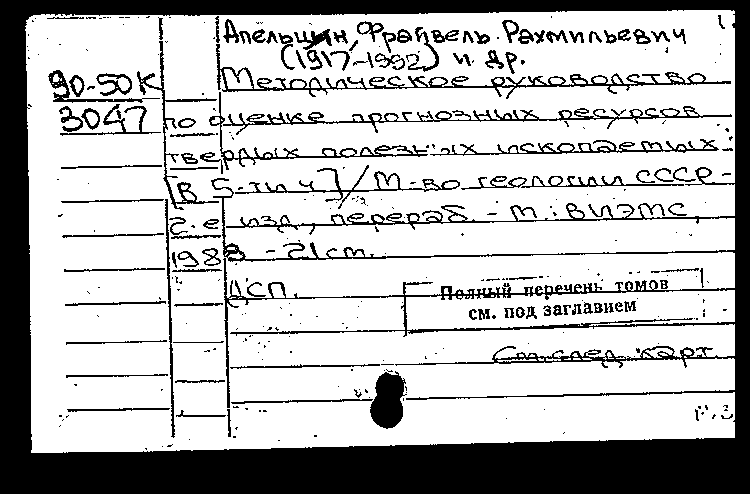 Апельцин Фрайвель Рахмильевич
(1917-1992) и др.
90-50К Методическое руководство
3047 по оценке прогнозных ресурсов
твердых полезных ископаемых:
[В 5-ти ч]/М-во геологии СССР-
2-е изд., перераб. - М.: ВИЭМС,
1988 - 21 см.
ДСП.
Полный перечень томов
см. под заглавием
См. след. карт.